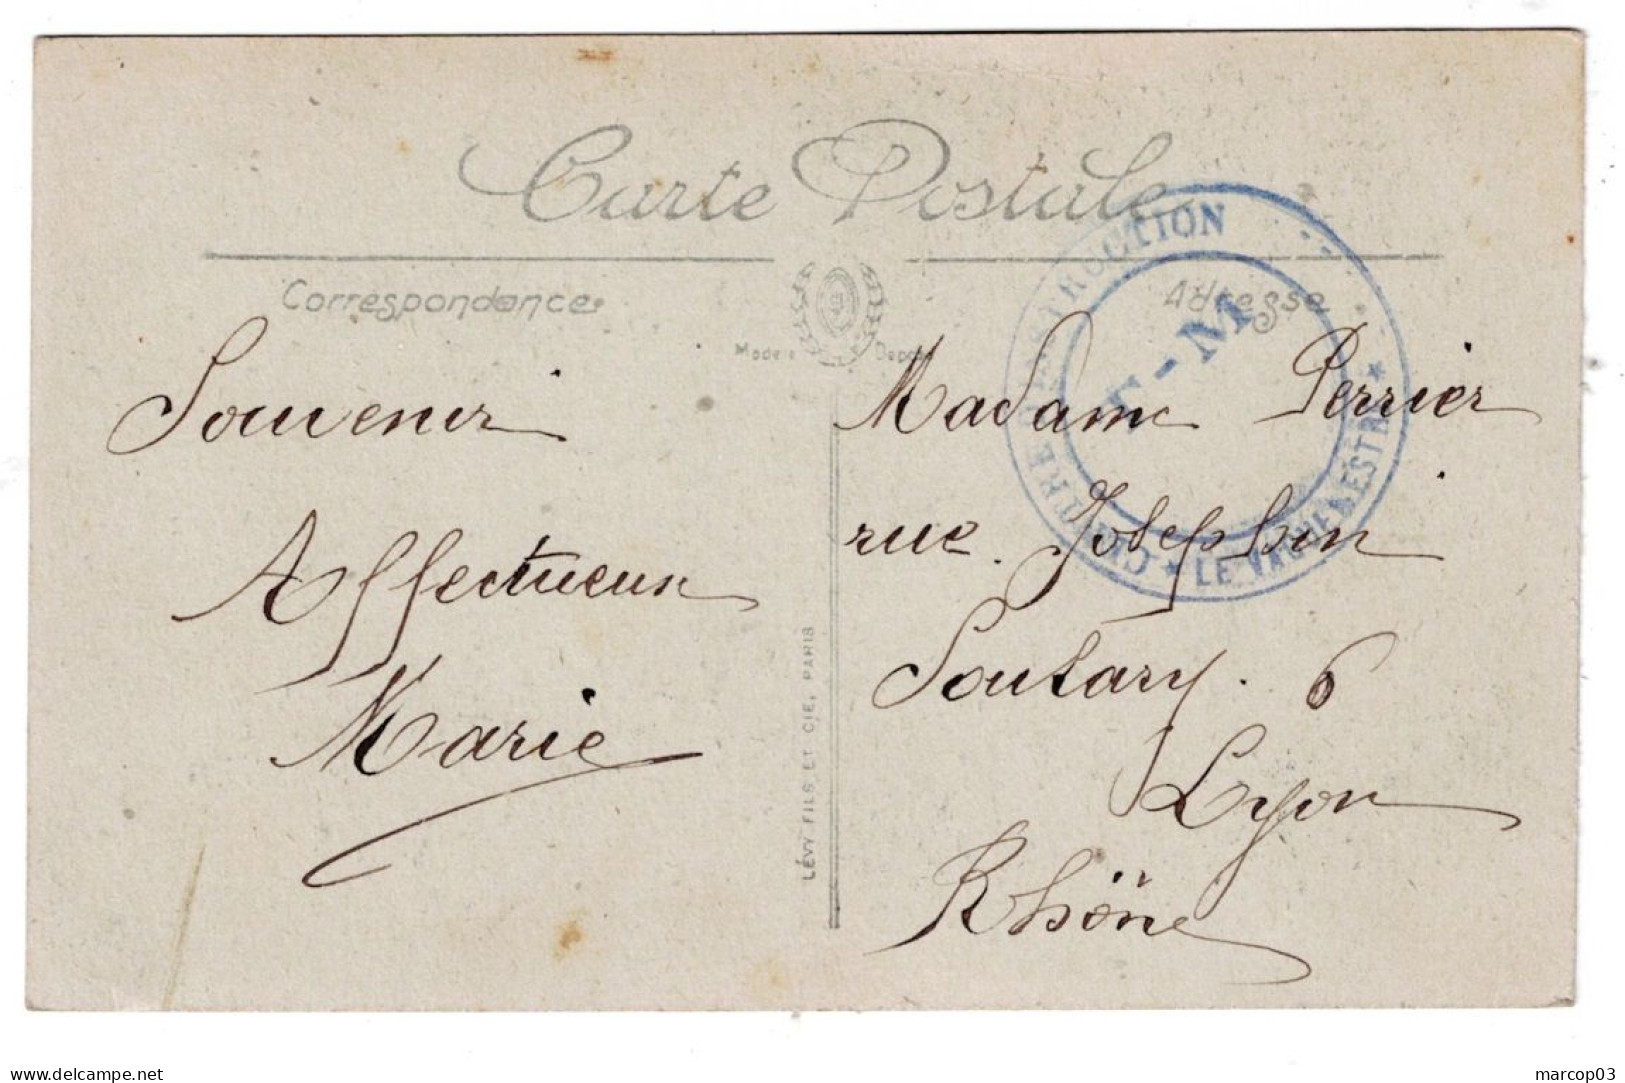 Carte Postale
Correspondance
Adresse
Modèle Déposé
Souvenir
Affectueux
Marie
LÉVY FILS ET CIE, PARIS
Madame Perrier
rue Joséphin
Soulary. 6
Lyon
Rhône
CENTRE D'INSTRUCTION
★ LE VAGUEMESTRE ★
- M
marcop03